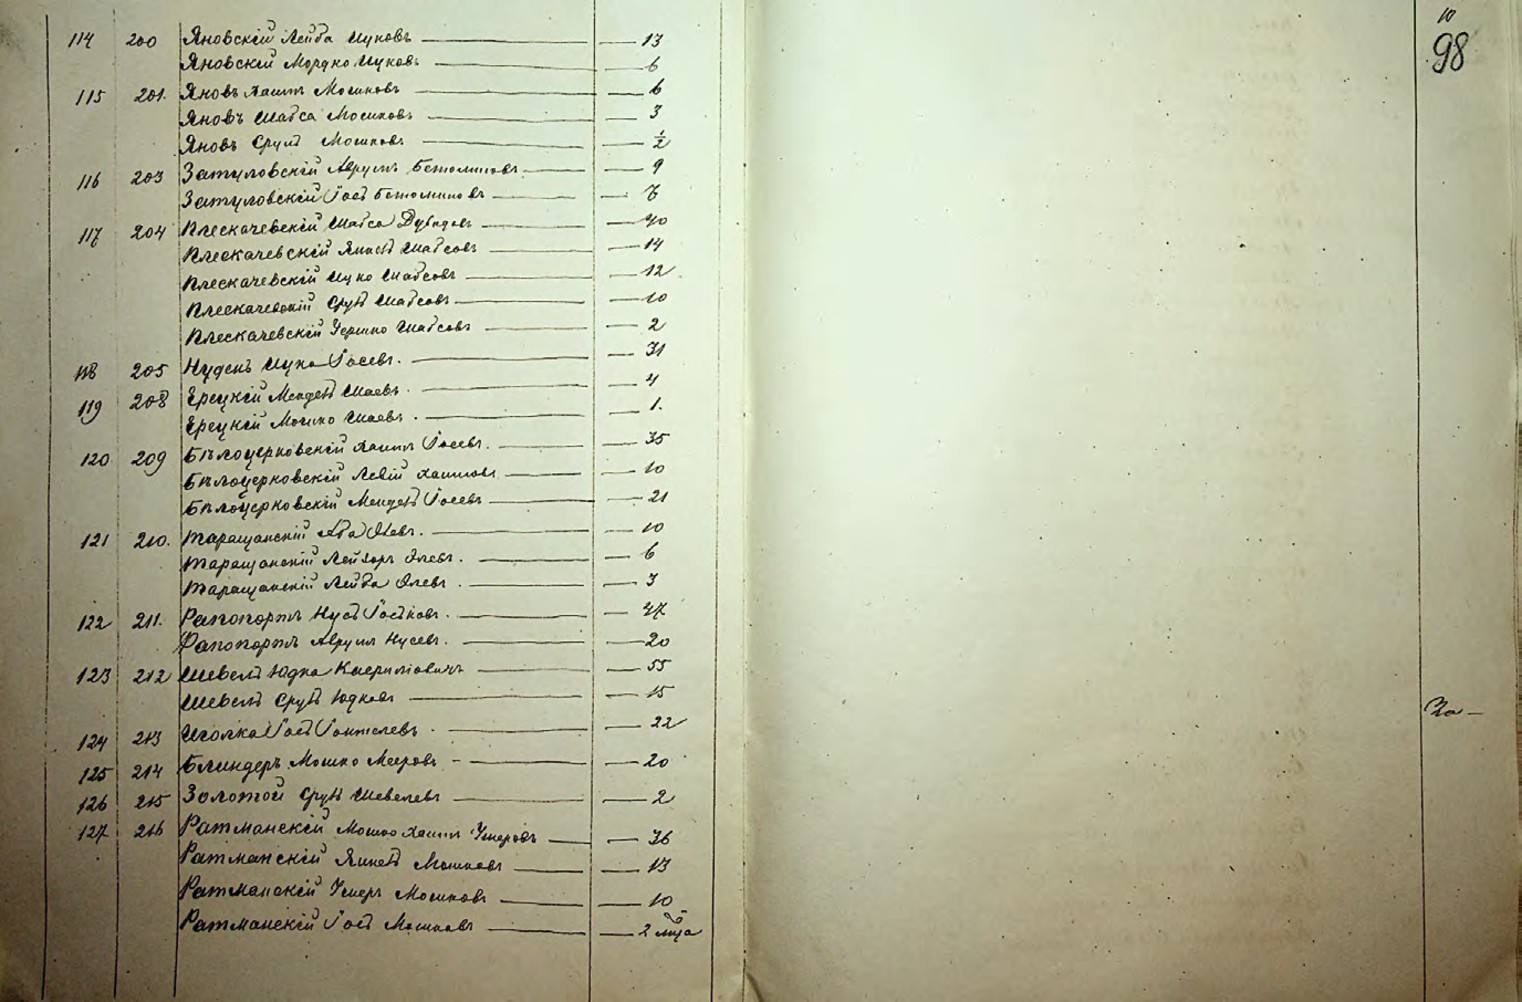 10
98
114 200 Яновскій Лейба Ицковъ — 13
Яновскій Мордко Ицковъ — 6
115 201. Яновъ Хаимъ Мошковъ — 6
Яновъ Шабса Мошковъ — 3
Яновъ Сруль Мошковъ — 1/2
116 203 Затуловскій Аврумъ — 9
Затуловскій Іось — 7
117 204 Плескачевскій Шабса Дувидовъ — 40
Плескачевскій Янкель Шабсовъ — 14
Плескачевскій Ицко Шабсовъ — 12
Плескачевскій Сруль Шабсовъ — 10
Плескачевскій Гершко Шабсовъ — 2
118 205 Нудень Ицко Іосевъ. — 31
119 208 Ерецкій Мендель Шаевъ. — 4
Ерецкій Мошко Шаевъ. — 1.
120 209 Бѣлоцерковскій Хаимъ Іосевъ. — 35
Бѣлоцерковскій Левій Хаимовъ — 10
Бѣлоцерковскій Мендель Іосевъ — 21
121 210. Таращанскій Аба — 10
Таращанскій Лейзоръ — 6
Таращанскій Лейба — 3
122 211. Рапопортъ Нусь — 47
Рапопортъ Аврумъ Нусевъ. — 20
123 212 Шевель Юдка — 55
Шевель Сруль Юдковъ — 15
За —
124 213 Иголка Іось — 22
125 214 Блиндеръ Мошко Мееровъ — 20
126 215 Золотой Сруль Шевелевъ — 2
127 216 Ратманскій Мошко Хаимъ Умеровъ — 36
Ратманскій Янкель Мошковъ — 13
Ратманскій Умеръ Мошковъ — 10
Ратманскій Іось Мошковъ — 2